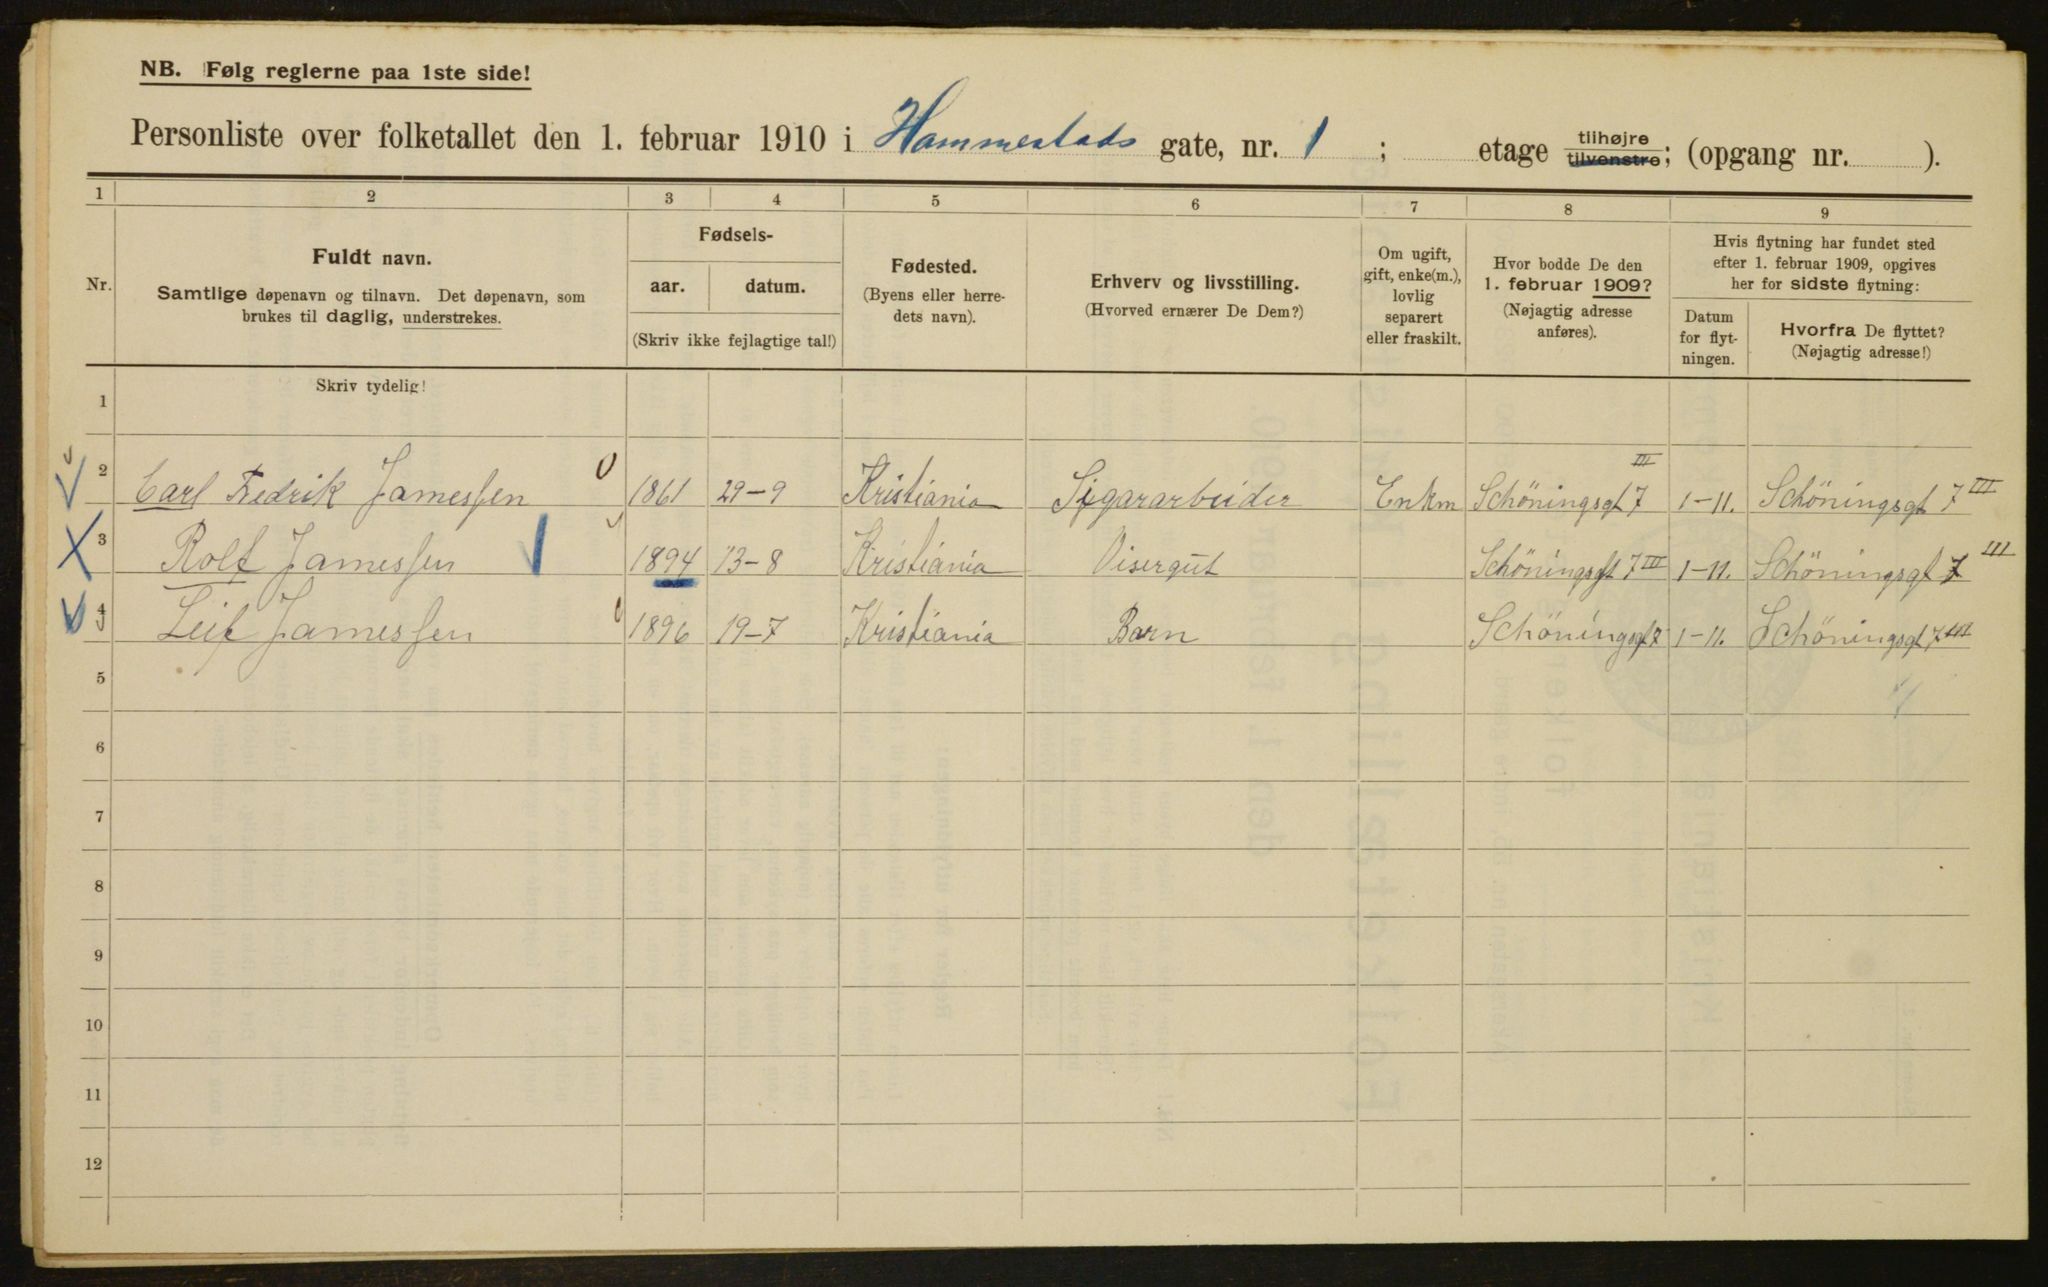 NB. Følg reglerne paa 1ste side!
Personliste over folketallet den 1. februar 1910 i Hammestads gate, nr. 1 ; etage tilhøjre tilvenstre; (opgang nr. ).
1 2 3 4 5 6 7 8 9
Nr.
Fuldt navn.
Samtlige døpenavn og tilnavn. Det døpenavn, som
brukes til daglig, understrekes.
Skriv tydelig!
Fødsels-
aar. datum.
(Skriv ikke fejlagtige tal!)
Fødested.
(Byens eller herre-
dets navn).
Erhverv og livsstilling.
(Hvorved ernærer De Dem?)
Om ugift,
gift, enke(m.),
lovlig
separert
eller fraskilt.
Hvor bodde De den
1. februar 1909?
(Nøjagtig adresse
anføres).
Hvis flytning har fundet sted
efter 1. februar 1909, opgives
her for sidste flytning:
Datum
for flyt-
ningen.
Hvorfra De flyttet?
(Nøjagtig adresse!)
1
2 Carl Fredrik Jamessen 1861 29-9 Kristiania Sigararbeider Enkm Schöningsgt 7 III 1-11. Schöningsgt 7 III
3 Rolf Jamessen 1894 13-8 Kristiania Visergut Schöningsgt 7 III 1-11. Schöningsgt 7 III
4 Leif Jamessen 1896 19-7 Kristiania Barn Schöningsgt 7 1-11. Schöningsgt 7 III
5
6
7
8
9
10
11
12